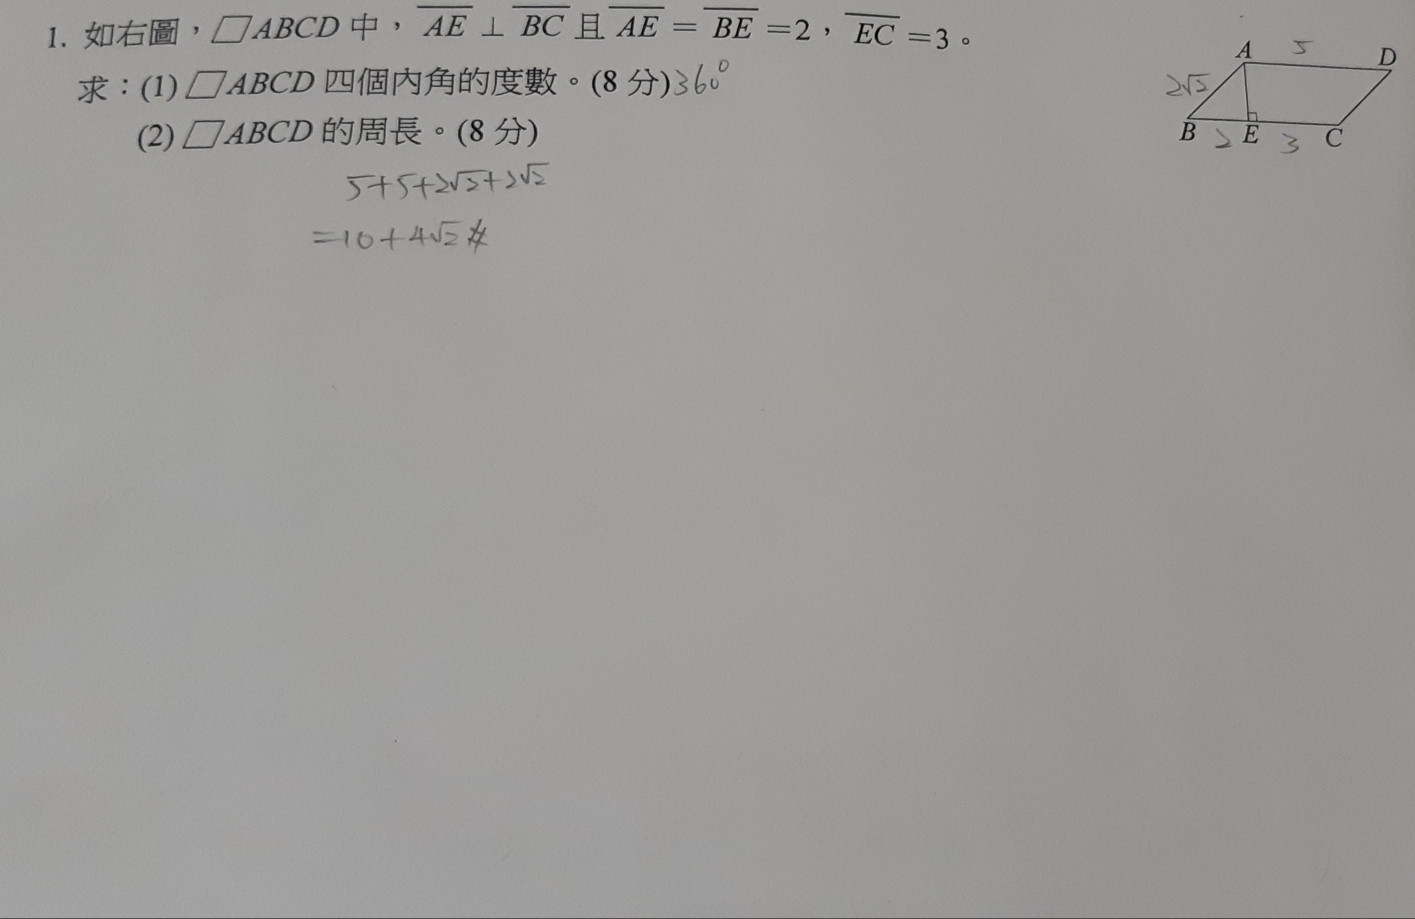 1. 如右圖，▱ABCD 中，AE ⊥ BC 且 AE = BE =2，EC =3。
求：(1) ▱ABCD 四個內角的度數。(8 分) 360°
(2) ▱ABCD 的周長。(8 分)
5+5+2√2+2√2
=10+4√2 #
A 5 D
2√2
B 2 E 3 C